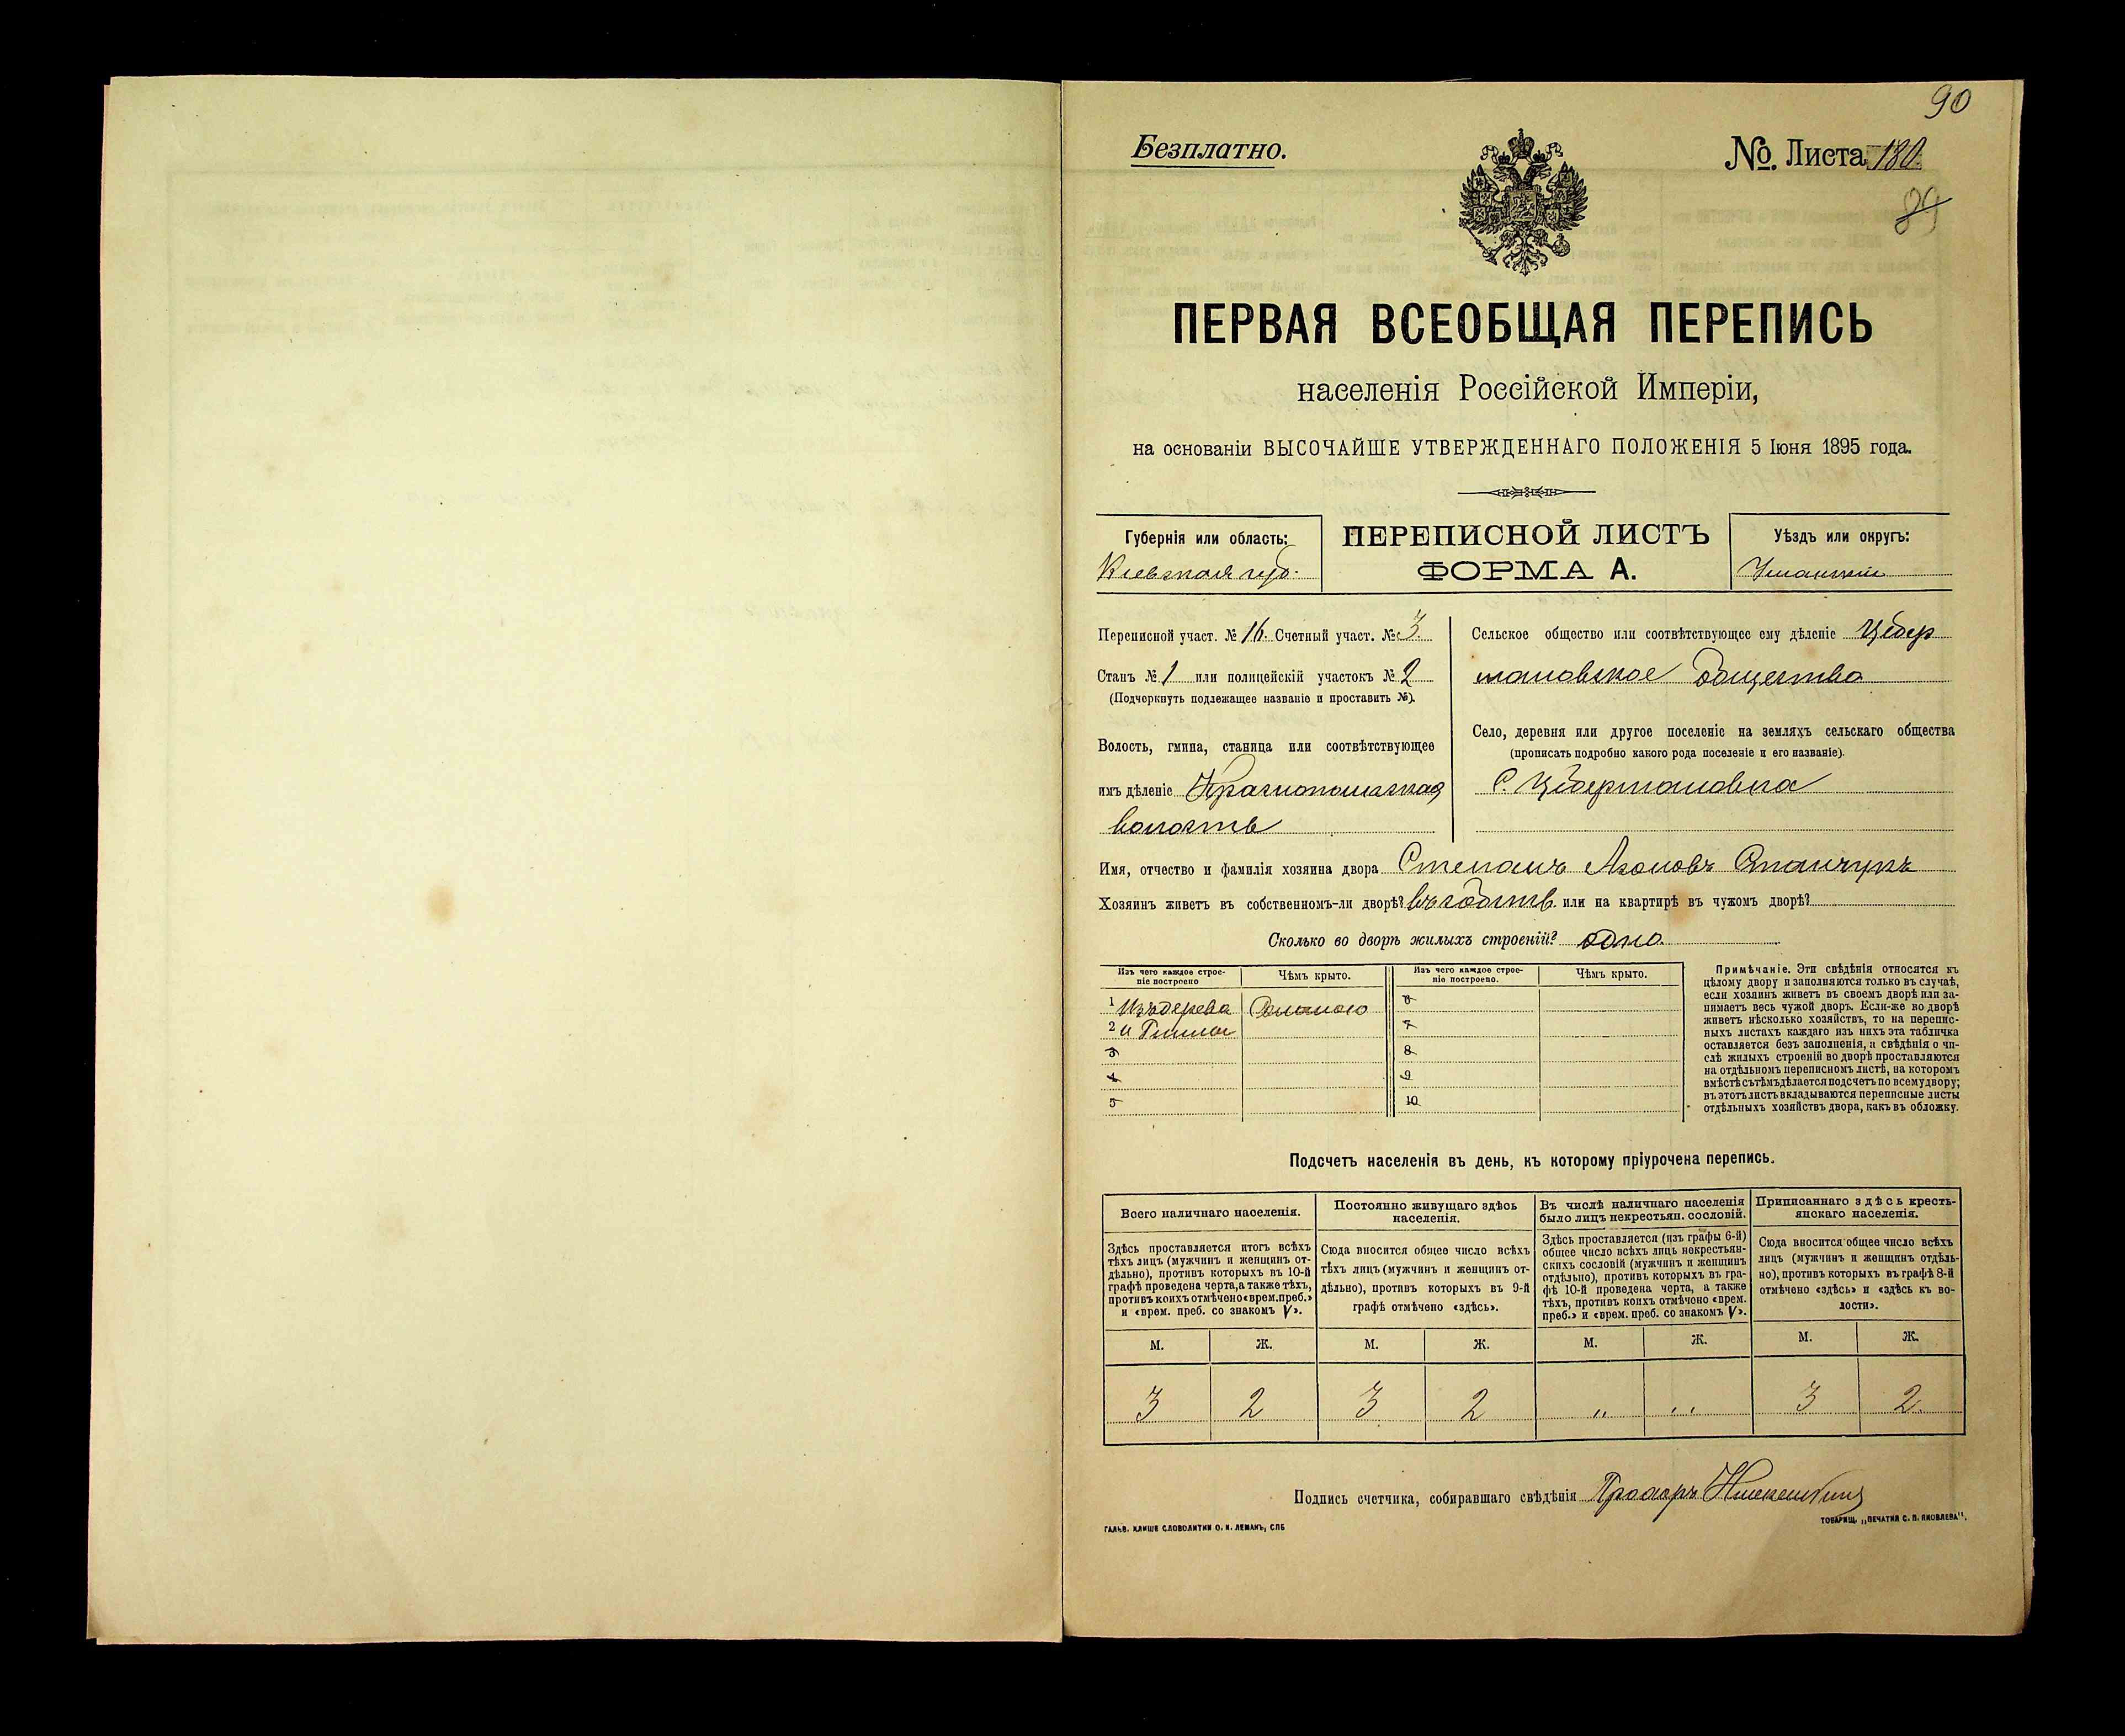 90
Безплатно.
№ Листа 180.
89
ПЕРВАЯ ВСЕОБЩАЯ ПЕРЕПИСЬ
населенія Россійской Имперіи,
на основаніи ВЫСОЧАЙШЕ УТВЕРЖДЕННАГО ПОЛОЖЕНІЯ 5 Іюня 1895 года.
Губернія или область:
Кіевская губ.
ПЕРЕПИСНОЙ ЛИСТЪ
ФОРМА А.
Уѣздъ или округъ:
Уманскій
Переписной участ. № 16. Счетный участ. № 3.
Станъ № 1 или полицейскій участокъ № 2
(Подчеркнуть подлежащее названіе и проставить №).
Волость, гмина, станица или соотвѣтствующее
имъ дѣленіе
волость
Сельское общество или соотвѣтствующее ему дѣленіе Цебер
мановское Общество
Село, деревня или другое поселеніе на земляхъ сельскаго общества
(прописать подробно какого рода поселеніе и его названіе).
С. Цебермановка
Имя, отчество и фамилія хозяина двора Степанъ
Хозяинъ живетъ въ собственномъ-ли дворѣ? или на квартирѣ въ чужомъ дворѣ?
Сколько во дворѣ жилыхъ строеній? одно.
Изъ чего каждое строе-
ніе построено
Чѣмъ крыто.
Изъ чего каждое строе-
ніе построено.
Чѣмъ крыто.
1 Изъ дерева Соломою
2 и Глины
3
4
5
6
7
8
9
10
Примѣчаніе. Эти свѣдѣнія относятся къ
цѣлому двору и заполняются только въ случаѣ,
если хозяинъ живетъ въ своемъ дворѣ или за-
нимаетъ весь чужой дворъ. Если-же во дворѣ
живетъ нѣсколько хозяйствъ, то на перепис-
ныхъ листахъ каждаго изъ нихъ эта табличка
оставляется безъ заполненія, а свѣдѣнія о чи-
слѣ жилыхъ строеній во дворѣ проставляются
на отдѣльномъ переписномъ листѣ, на которомъ
вмѣстѣ съ тѣмъ дѣлается подсчетъ по всему двору;
въ этотъ листъ вкладываются переписные листы
отдѣльныхъ хозяйствъ двора, какъ въ обложку.
Подсчетъ населенія въ день, къ которому пріурочена перепись.
Всего наличнаго населенія.
Постоянно живущаго здѣсь
населенія.
Въ числѣ наличнаго населенія
было лицъ некрестьян. сословій.
Приписаннаго здѣсь кресть-
янскаго населенія.
Здѣсь проставляется итогъ всѣхъ
тѣхъ лицъ (мужчинъ и женщинъ от-
дѣльно), противъ которыхъ въ 10-й
графѣ проведена черта, а также тѣхъ,
противъ коихъ отмѣчено «врем. преб.»
и «врем. преб. со знакомъ V».
Сюда вносится общее число всѣхъ
тѣхъ лицъ (мужчинъ и женщинъ от-
дѣльно), противъ которыхъ въ 9-й
графѣ отмѣчено «здѣсь».
Здѣсь проставляется (изъ графы 6-й)
общее число всѣхъ лицъ некрестьян-
скихъ сословій (мужчинъ и женщинъ
отдѣльно), противъ которыхъ въ гра-
фѣ 10-й проведена черта, а также
тѣхъ, противъ коихъ отмѣчено «врем.
преб.» и «врем. преб. со знакомъ V».
Сюда вносится общее число всѣхъ
лицъ (мужчинъ и женщинъ отдѣль-
но), противъ которыхъ въ графѣ 8-й
отмѣчено «здѣсь» и «здѣсь къ во-
лости».
М. Ж. М. Ж. М. Ж. М. Ж.
3 2 3 2 „ „ 3 2.
Подпись счетчика, собиравшаго свѣдѣнія Прохоръ
ГАЛЬВ. КЛИШЕ СЛОВОЛИТНИ О. И. ЛЕМАНЪ, СПБ
ТОВАРИЩ. „ПЕЧАТНЯ С. П. ЯКОВЛЕВА".